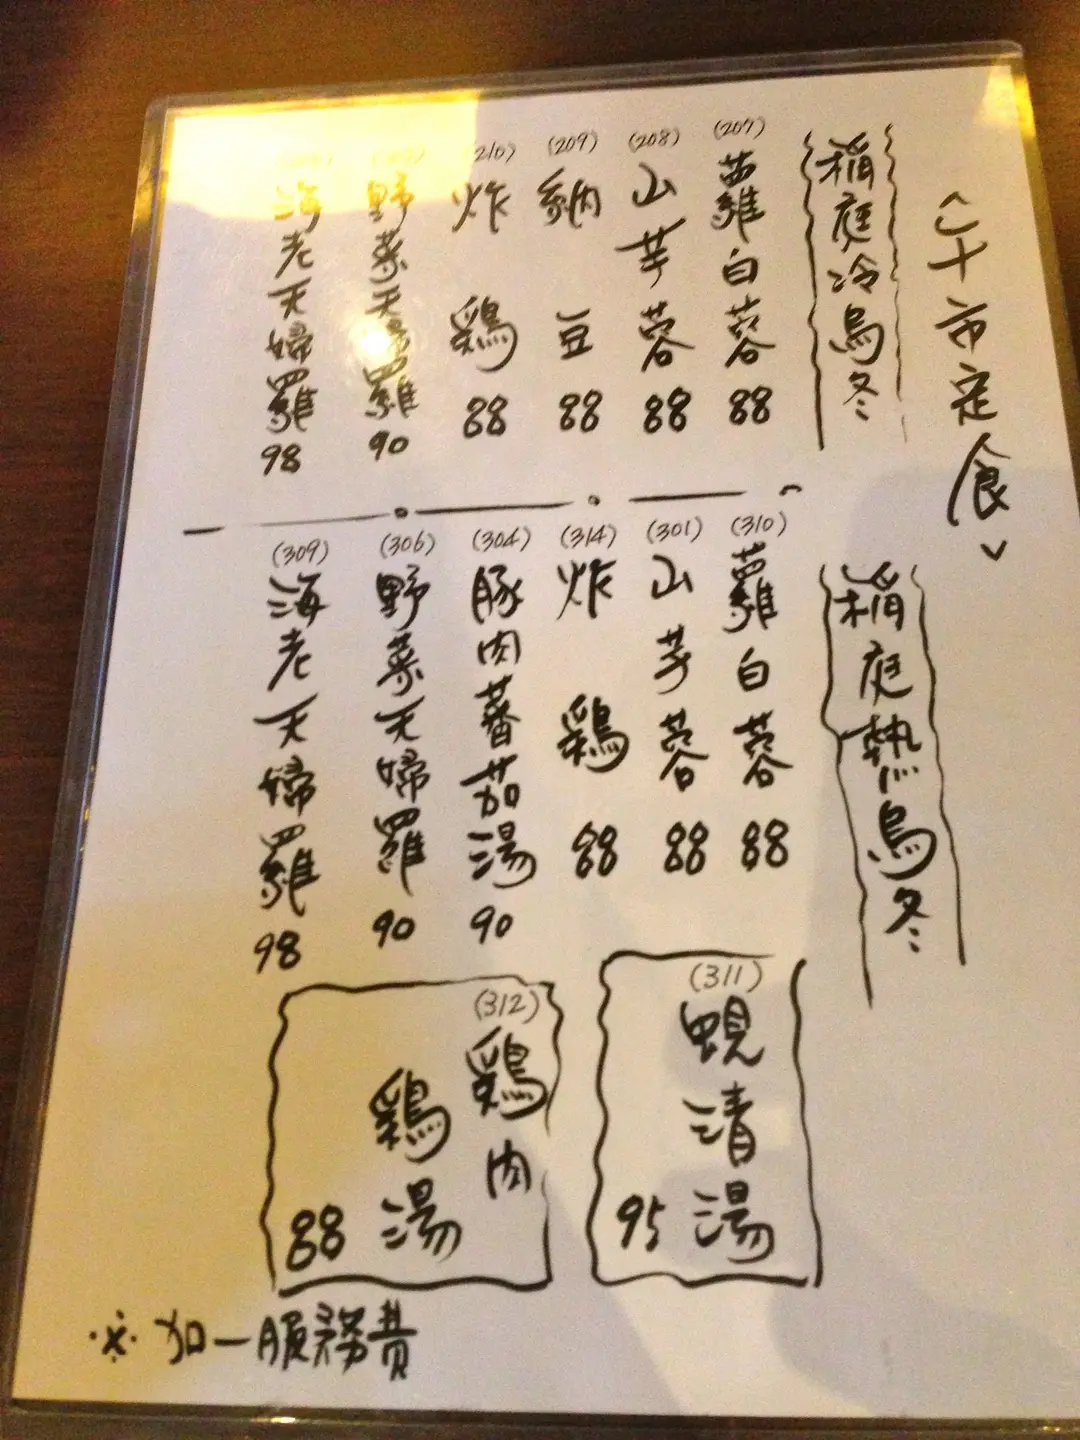 十市定食
稲庭冷烏冬
(207) 蘿白蓉 88
(208) 山芋蓉 88
(209) 納豆 88
(210) 炸鶏 88
野菜天婦羅 90
海老天婦羅 98
稲庭熱烏冬
(310) 蘿白蓉 88
(301) 山芋蓉 88
(314) 炸鶏 88
(304) 豚肉蕃茄湯 90
(306) 野菜天婦羅 90
(309) 海老天婦羅 98
(311) 蜆清湯 95
(312) 鶏肉
鶏湯 88
※加一服務費